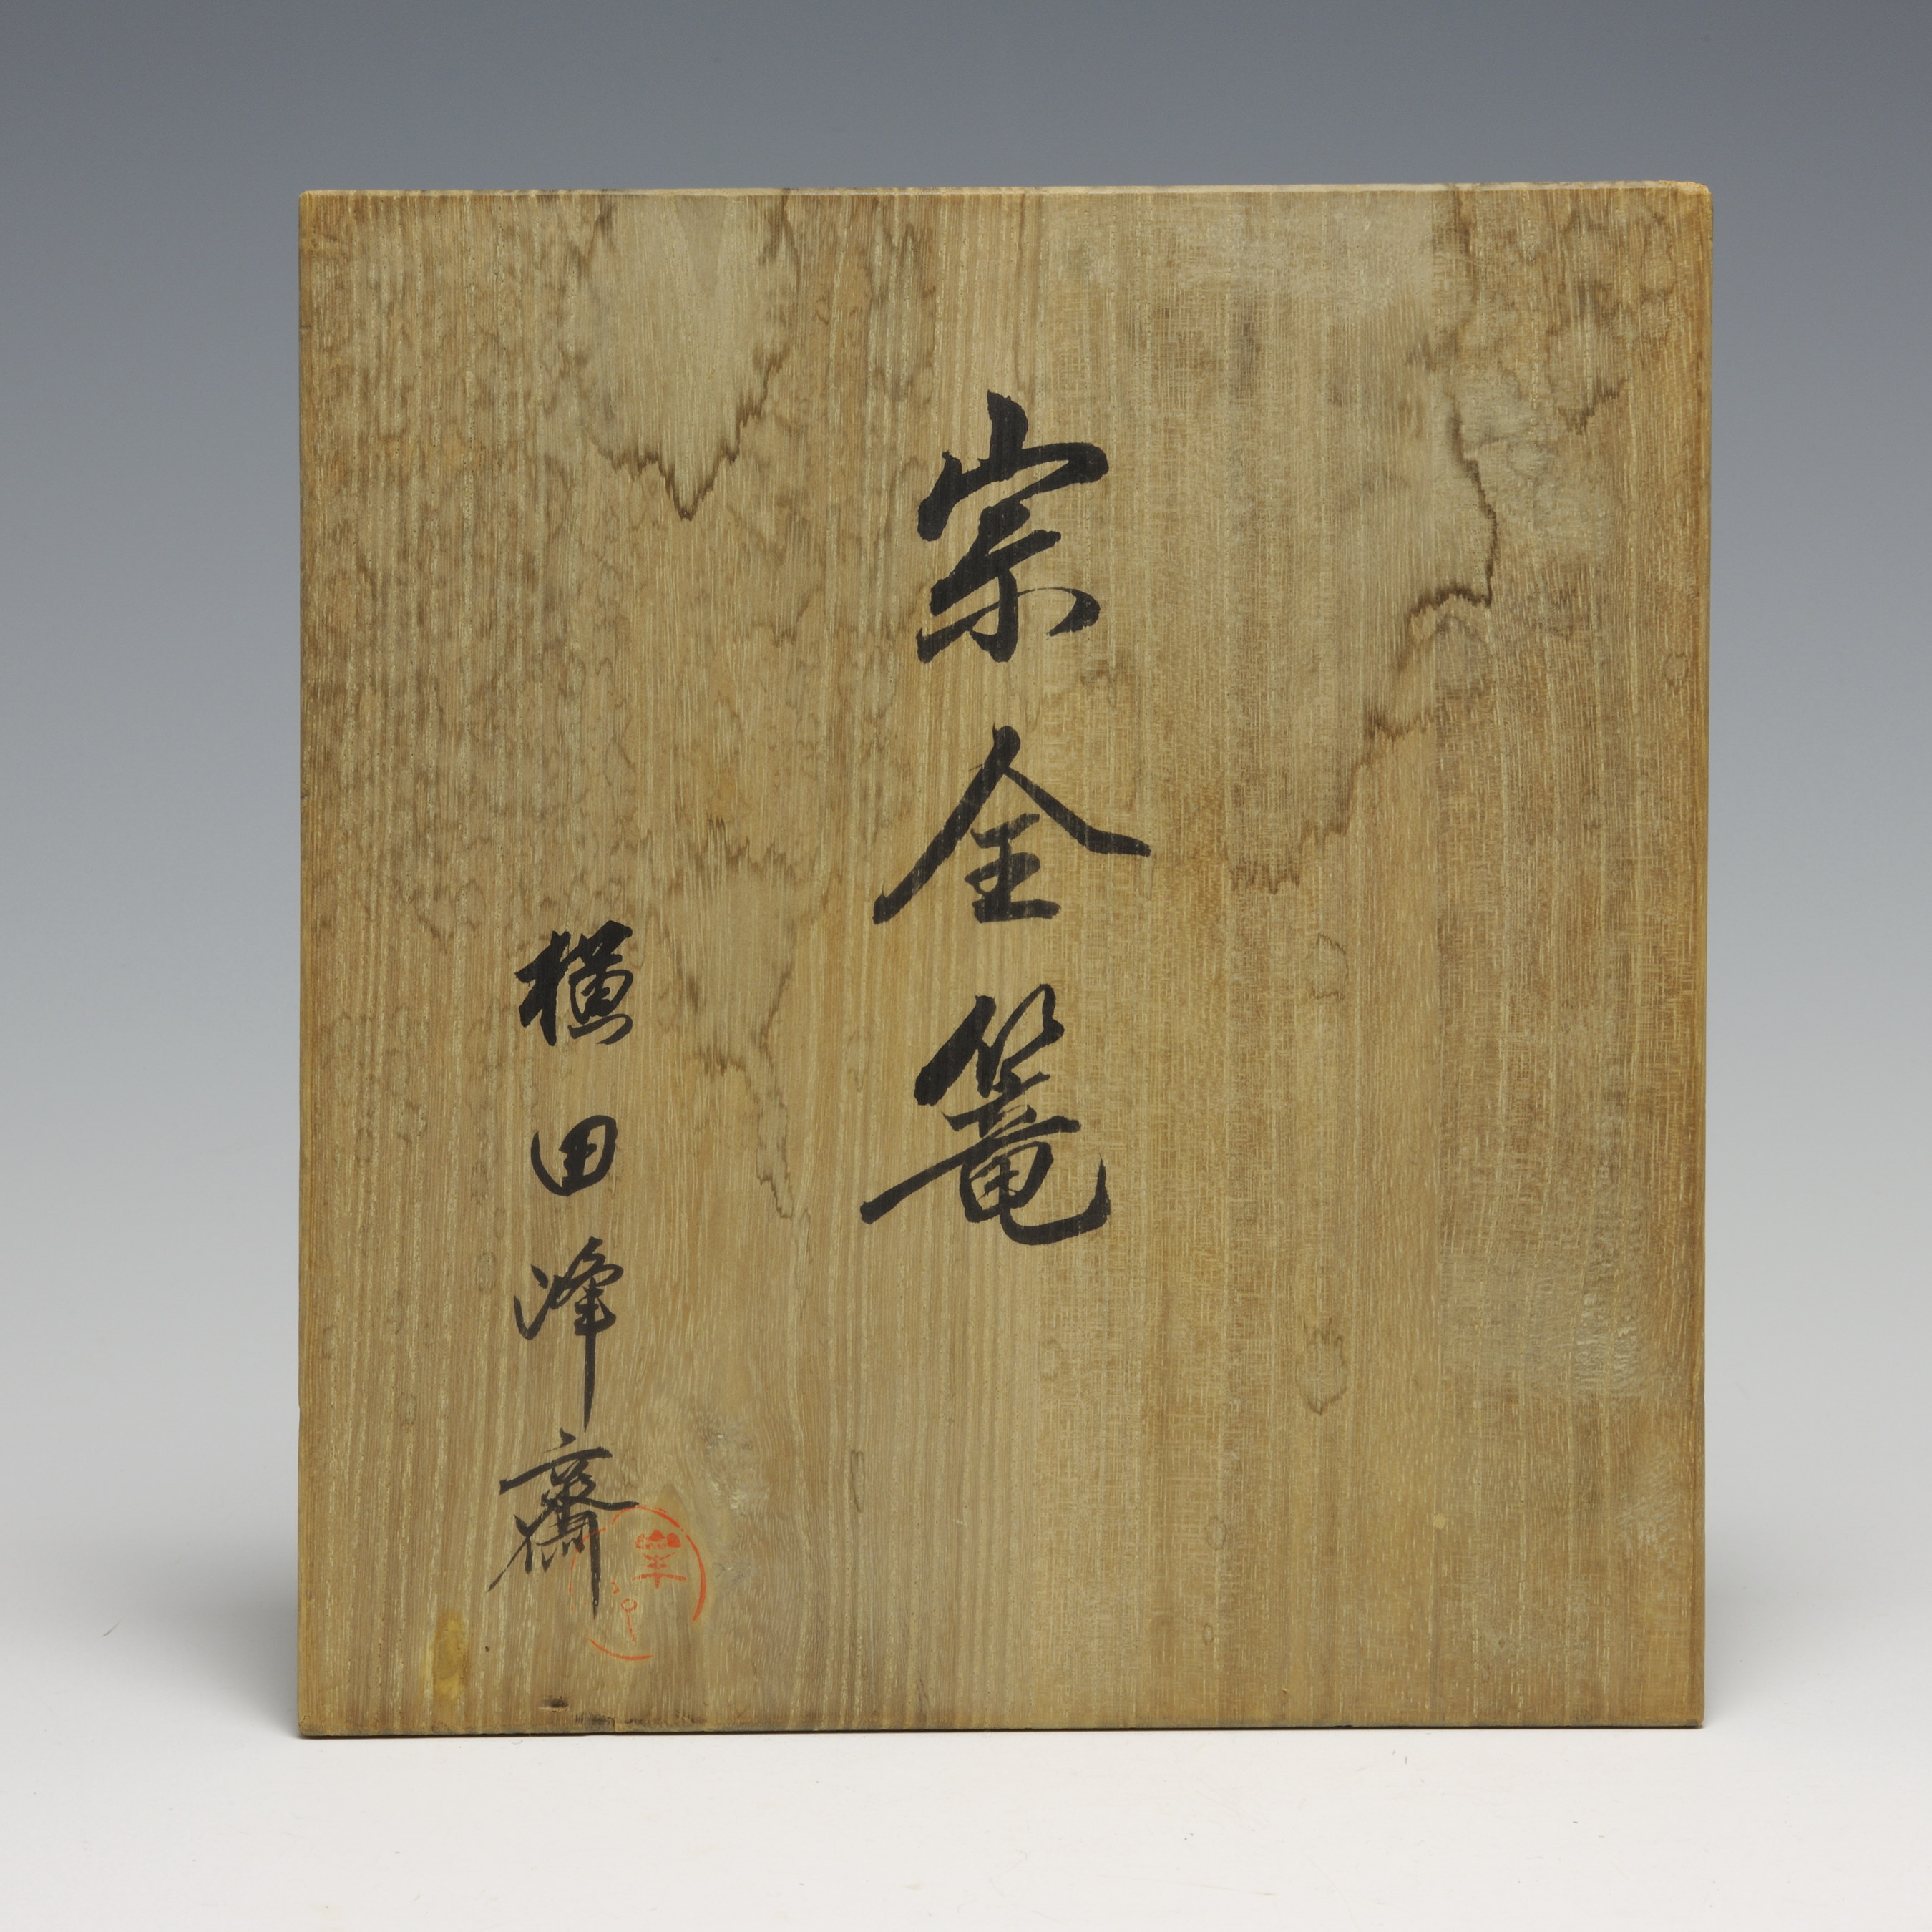 宗全篭
横田峰斎